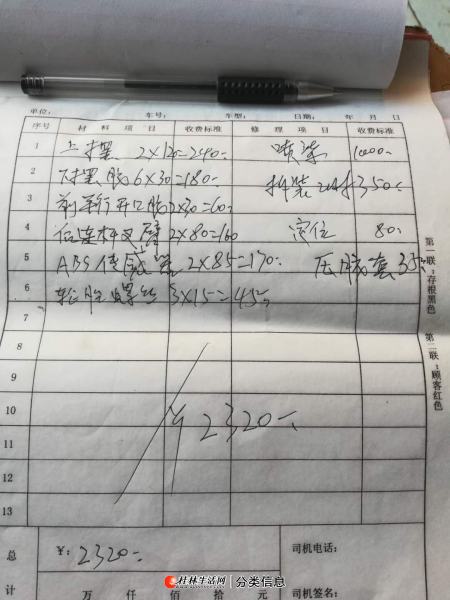 单位: 车号: 车型: 日期: 年 月 日
序号 材料项目 收费标准 修理项目 收费标准
1 上摆 2X120=240 喷漆 1000
2 下摆胶 6X30=180 拆装 350
3 前平行开口胶 2X30=60
4 后连杆叉臂 2X80=160 定位 80
5 ABS传感器 2X85=170 压胶套 35
6 轮胎螺丝 3X15=45
7
8
9
10 ¥2320
11
12
13
总计 ¥: 2320 司机电话:
万 仟 佰 拾 元 司机签名:
第一联:存根黑色 第二联:顾客红色
桂林生活网 分类信息